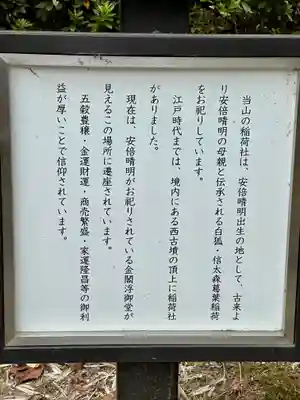 当山の稲荷社は、安倍晴明出生の地として、古来よ
り安倍晴明の母親と伝承される白狐・信太森葛葉稲荷
をお祀りしています。
江戸時代までは、境内にある西古墳の頂上に稲荷社
がありました。
現在は、安倍晴明がお祀りされている金閣浮御堂が
見えるこの場所に遷座されています。
五穀豊穣・金運財運・商売繁盛・家運隆昌等の御利
益が厚いことで信仰されています。